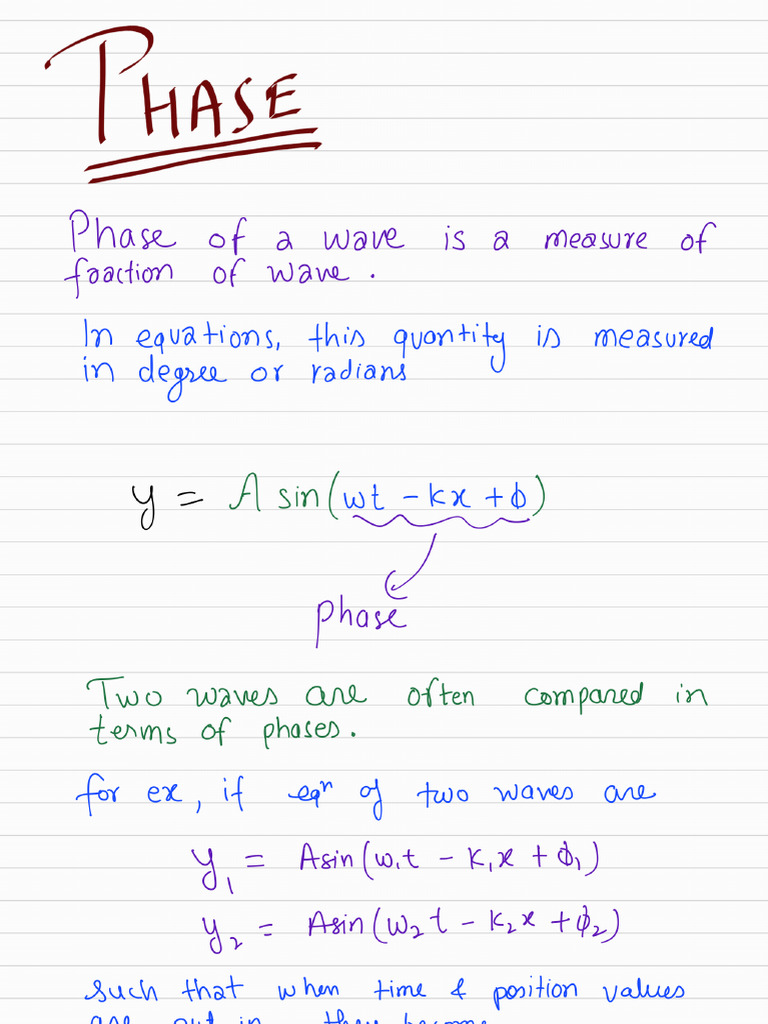 PHASE
Phase of a wave is a measure of
fraction of wave.
In equations, this quantity is measured
in degree or radians
y = A sin(ωt − kx + ϕ)
phase
Two waves are often compared in
terms of phases.
for ex, if eqⁿ of two waves are
y₁ = A sin(ω₁t − k₁x + ϕ₁)
y₂ = A sin(ω₂t − k₂x + ϕ₂)
such that when time & position values
are put in they become